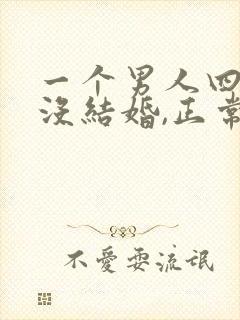 一个男人四
没結婚,正常
不愛耍流氓